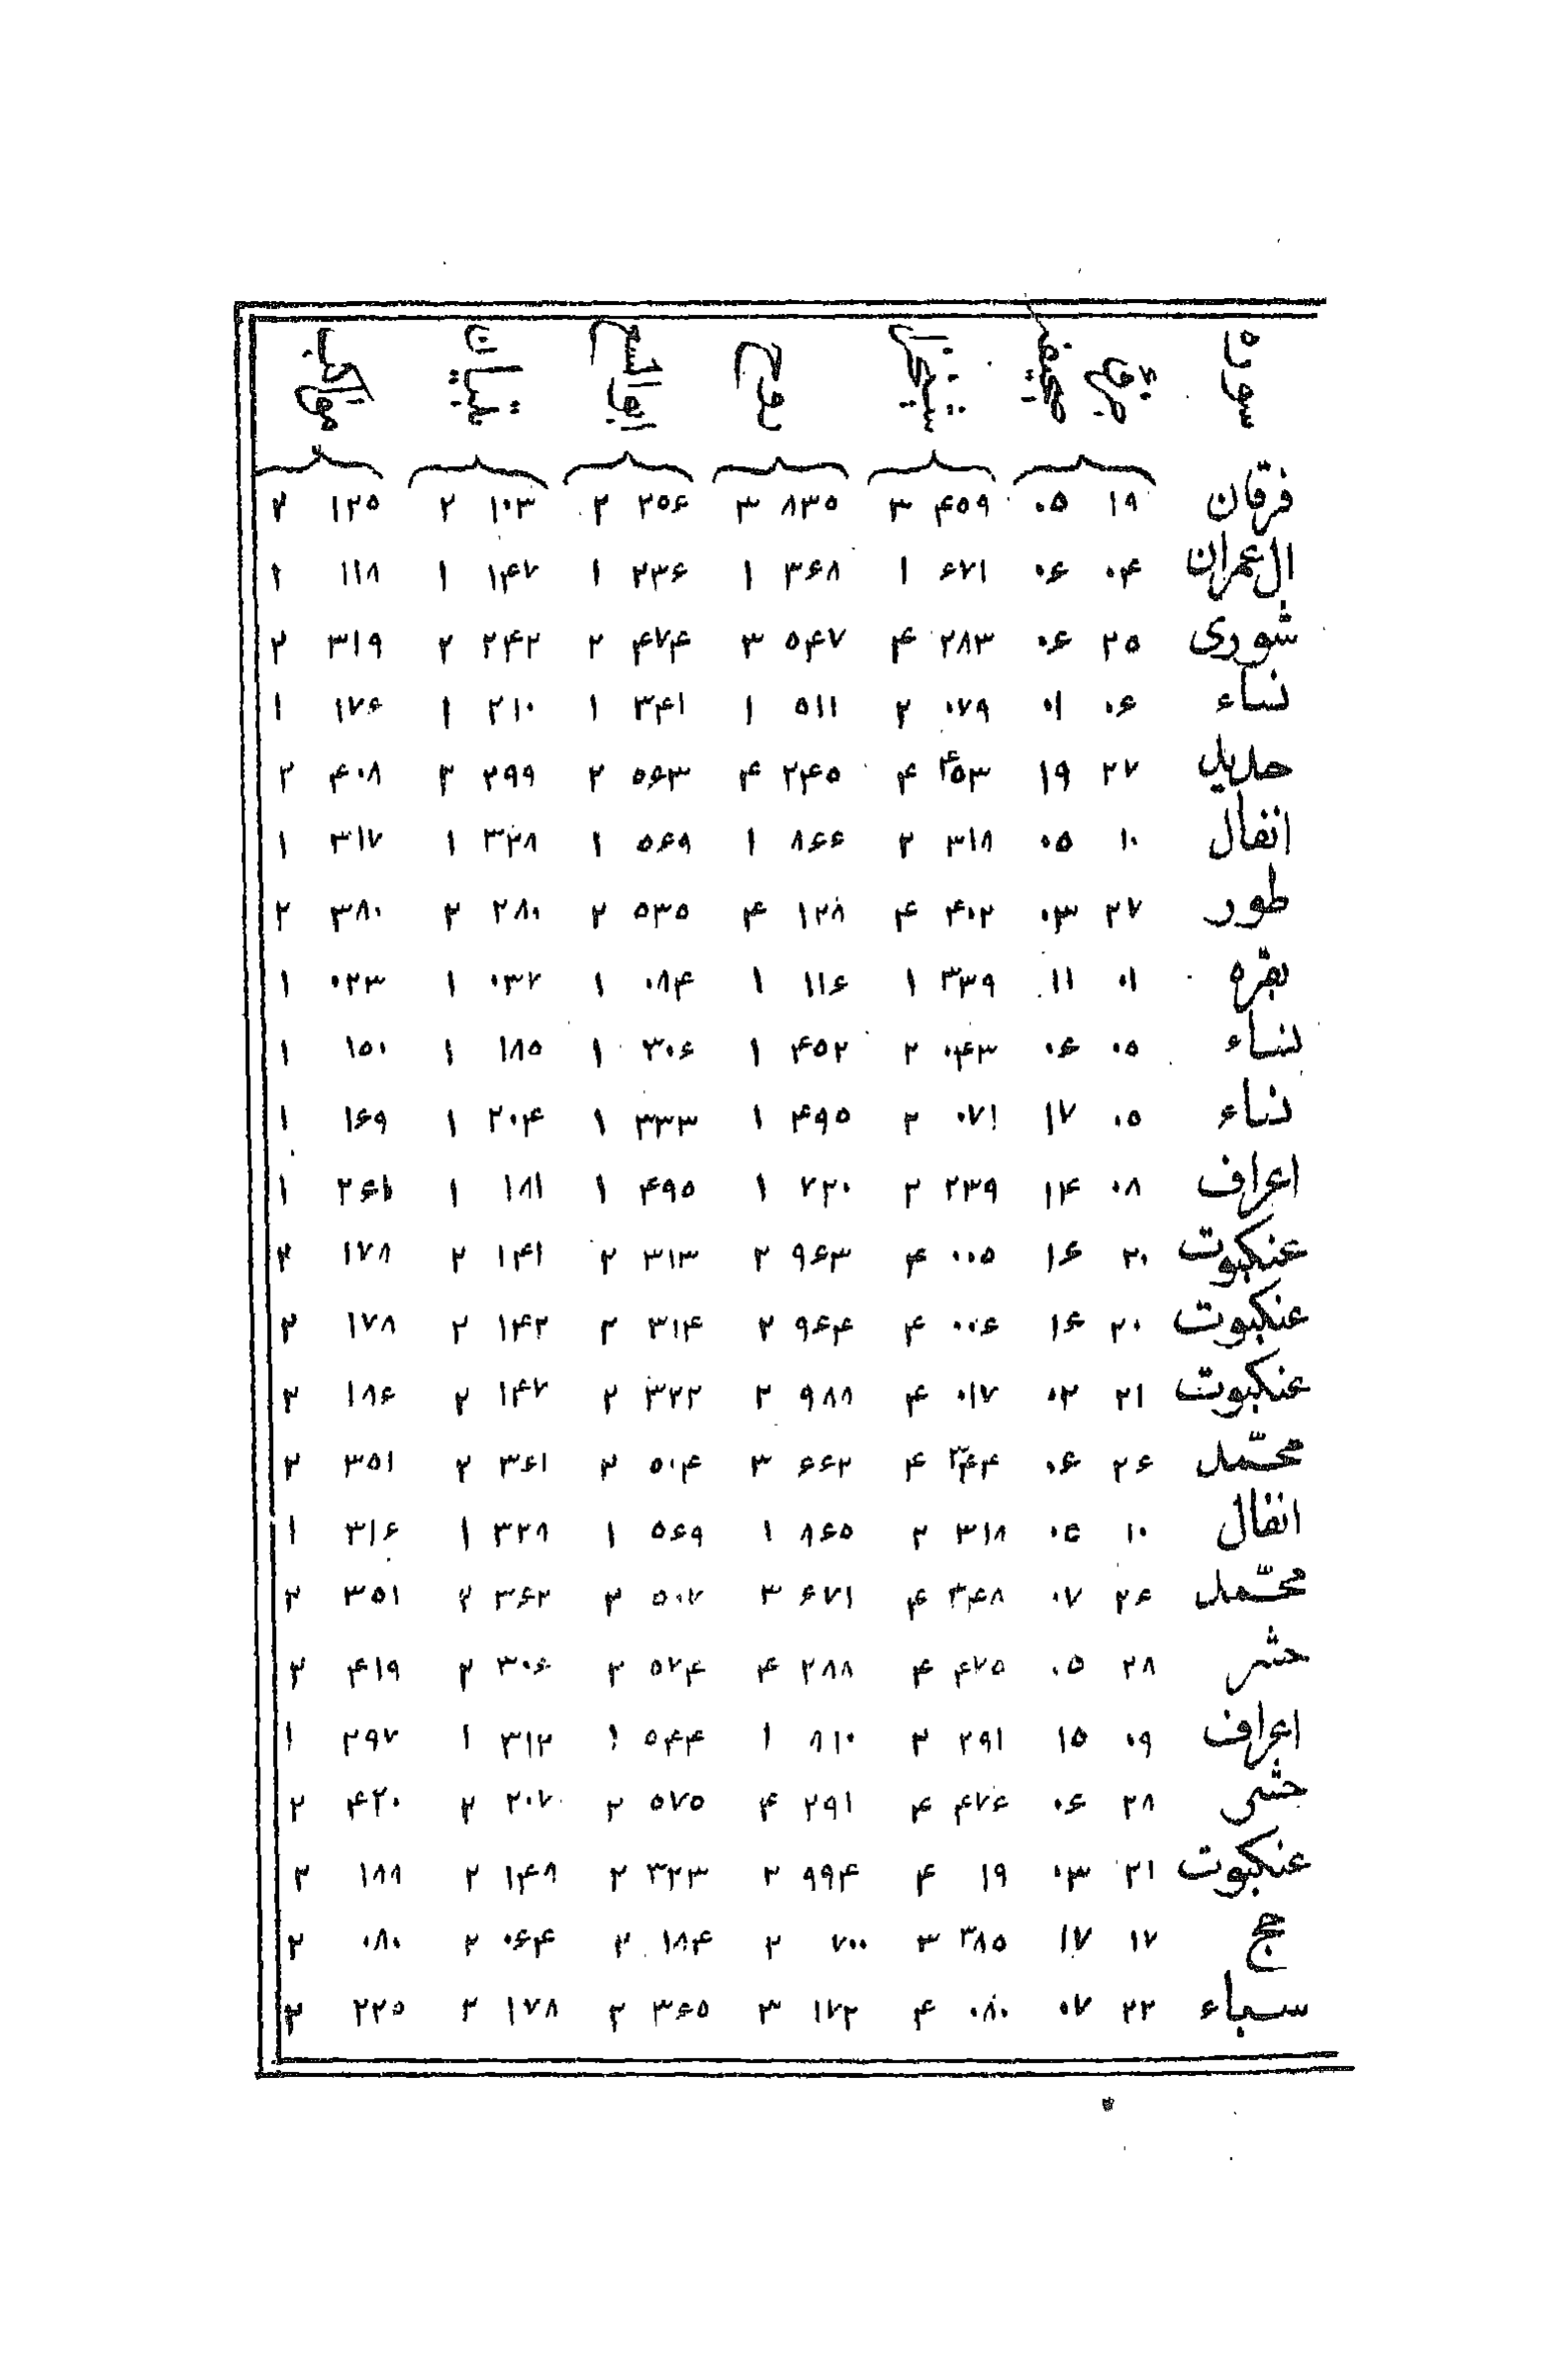 سوره جزء صحیفه شیخ روح ابوالسعود تبیان مواکب
فرقان ۱۹ ۰۵ ۴۵۹ ۳ ۸۳۵ ۳ ۲۵۶ ۲ ۱۰۳ ۲ ۱۲۵ ۲
ال عمران ۰۴ ۰۶ ۶۷۱ ۱ ۳۶۸ ۱ ۲۳۶ ۱ ۱۴۷ ۱ ۱۱۸ ۱
شوری ۲۵ ۰۶ ۲۸۳ ۴ ۵۴۷ ۳ ۴۷۴ ۲ ۲۴۲ ۲ ۳۱۹ ۲
نساء ۰۶ ۰۱ ۰۷۹ ۲ ۵۱۱ ۱ ۳۴۱ ۱ ۲۱۰ ۱ ۱۷۶ ۱
حدید ۲۷ ۱۹ ۴۵۳ ۴ ۲۴۵ ۴ ۵۶۳ ۲ ۲۹۹ ۲ ۴۰۸ ۲
انفال ۱۰ ۰۵ ۳۱۸ ۲ ۸۶۶ ۱ ۵۶۹ ۱ ۳۲۸ ۱ ۳۱۷ ۱
طور ۲۷ ۰۳ ۴۰۲ ۴ ۱۲۸ ۴ ۵۳۵ ۲ ۲۸۰ ۲ ۳۸۰ ۲
بقره ۰۱ ۱۱ ۳۳۹ ۱ ۱۱۶ ۱ ۰۸۴ ۱ ۰۳۷ ۱ ۰۲۳ ۱
نساء ۰۵ ۰۶ ۰۴۳ ۲ ۴۵۲ ۱ ۳۰۶ ۱ ۱۸۵ ۱ ۱۵۰ ۱
نساء ۰۵ ۱۷ ۰۷۱ ۲ ۴۹۵ ۱ ۳۳۳ ۱ ۲۰۴ ۱ ۱۶۹ ۱
اعراف ۰۸ ۱۴ ۲۳۹ ۲ ۷۲۰ ۱ ۴۹۵ ۱ ۱۸۱ ۱ ۱
عنکبوت ۲۰ ۱۶ ۰۰۵ ۴ ۹۶۳ ۲ ۳۱۳ ۲ ۱۴۱ ۲ ۱۷۸ ۲
عنکبوت ۲۰ ۱۶ ۰۰۶ ۴ ۹۶۴ ۲ ۳۱۴ ۲ ۱۴۲ ۲ ۱۷۸ ۲
عنکبوت ۲۱ ۰۲ ۰۱۷ ۴ ۹۸۸ ۲ ۳۲۲ ۲ ۱۴۷ ۲ ۱۸۶ ۲
محمّد ۲۶ ۰۶ ۳۴۴ ۴ ۶۶۲ ۳ ۵۰۴ ۲ ۳۶۱ ۲ ۳۵۱ ۲
انفال ۱۰ ۰۴ ۳۱۸ ۲ ۸۶۵ ۱ ۵۶۹ ۱ ۳۲۸ ۱ ۳۱۶ ۱
محمّد ۲۶ ۰۷ ۳۴۸ ۴ ۶۷۱ ۳ ۵۰۷ ۲ ۳۶۲ ۲ ۳۵۱ ۲
حشر ۲۸ ۰۵ ۴۷۵ ۴ ۲۸۸ ۴ ۵۷۴ ۲ ۳۰۶ ۲ ۴۱۹ ۲
اعراف ۰۹ ۱۵ ۲۹۱ ۲ ۸۱۰ ۱ ۵۴۴ ۱ ۳۱۲ ۱ ۲۹۷ ۱
حشر ۲۸ ۰۶ ۴۷۶ ۴ ۲۹۱ ۴ ۵۷۵ ۲ ۲۰۷ ۲ ۴۲۰ ۲
عنکبوت ۲۱ ۰۳ ۱۹ ۴ ۹۹۴ ۲ ۳۲۳ ۲ ۱۴۸ ۲ ۱۸۸ ۲
حج ۱۷ ۱۷ ۳۸۵ ۳ ۷۰۰ ۲ ۱۸۴ ۲ ۰۶۴ ۲ ۰۸۰ ۲
سباء ۲۲ ۰۷ ۰۸۰ ۴ ۱۷۲ ۳ ۳۶۵ ۲ ۱۷۸ ۲ ۲۲۵ ۲